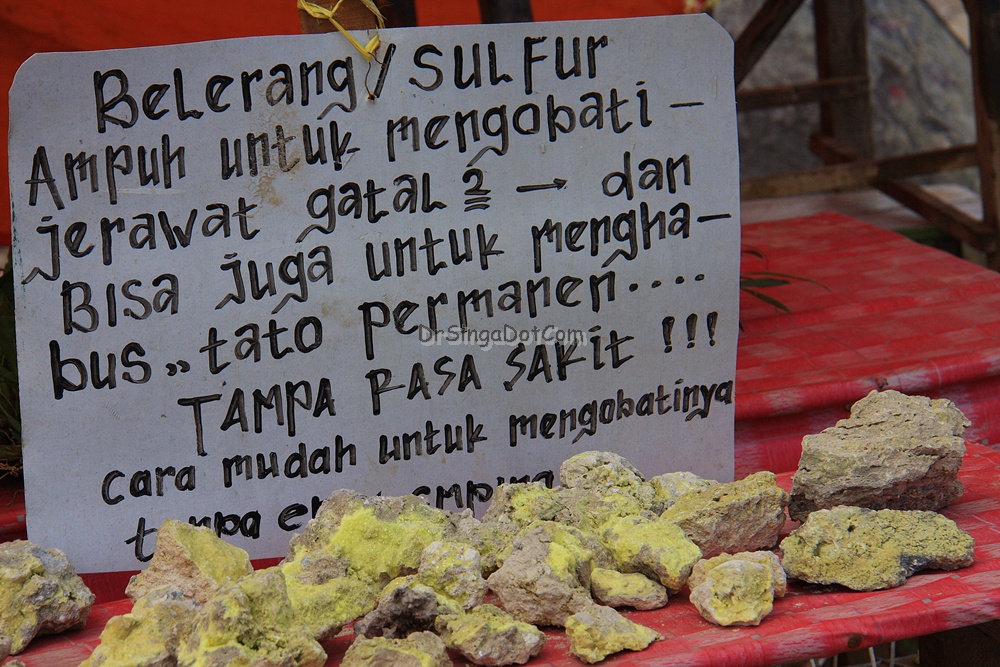 Belerang / SULFUR
Ampuh untuk mengobati -
jerawat gatal 2 → dan
Bisa juga untuk mengha-
bus „ tato permanen....
TAMPA RASA SAKIT !!!
cara mudah untuk mengobatinya
DrSingaDotCom